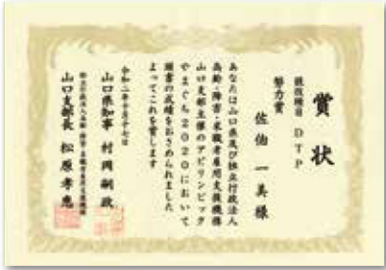 賞状
競技種目 DTP
努力賞
佐伯 一美 様
あなたは山口県及び独立行政法人
高齢・障害・求職者雇用支援機構
山口支部主催のアビリンピック
やまぐち2020において
頭書の成績をおさめられました
よってこれを賞します
令和二年十月十七日
山口県知事 村岡嗣政
独立行政法人高齢・障害・求職者雇用支援機構
山口支部長 松原孝恵